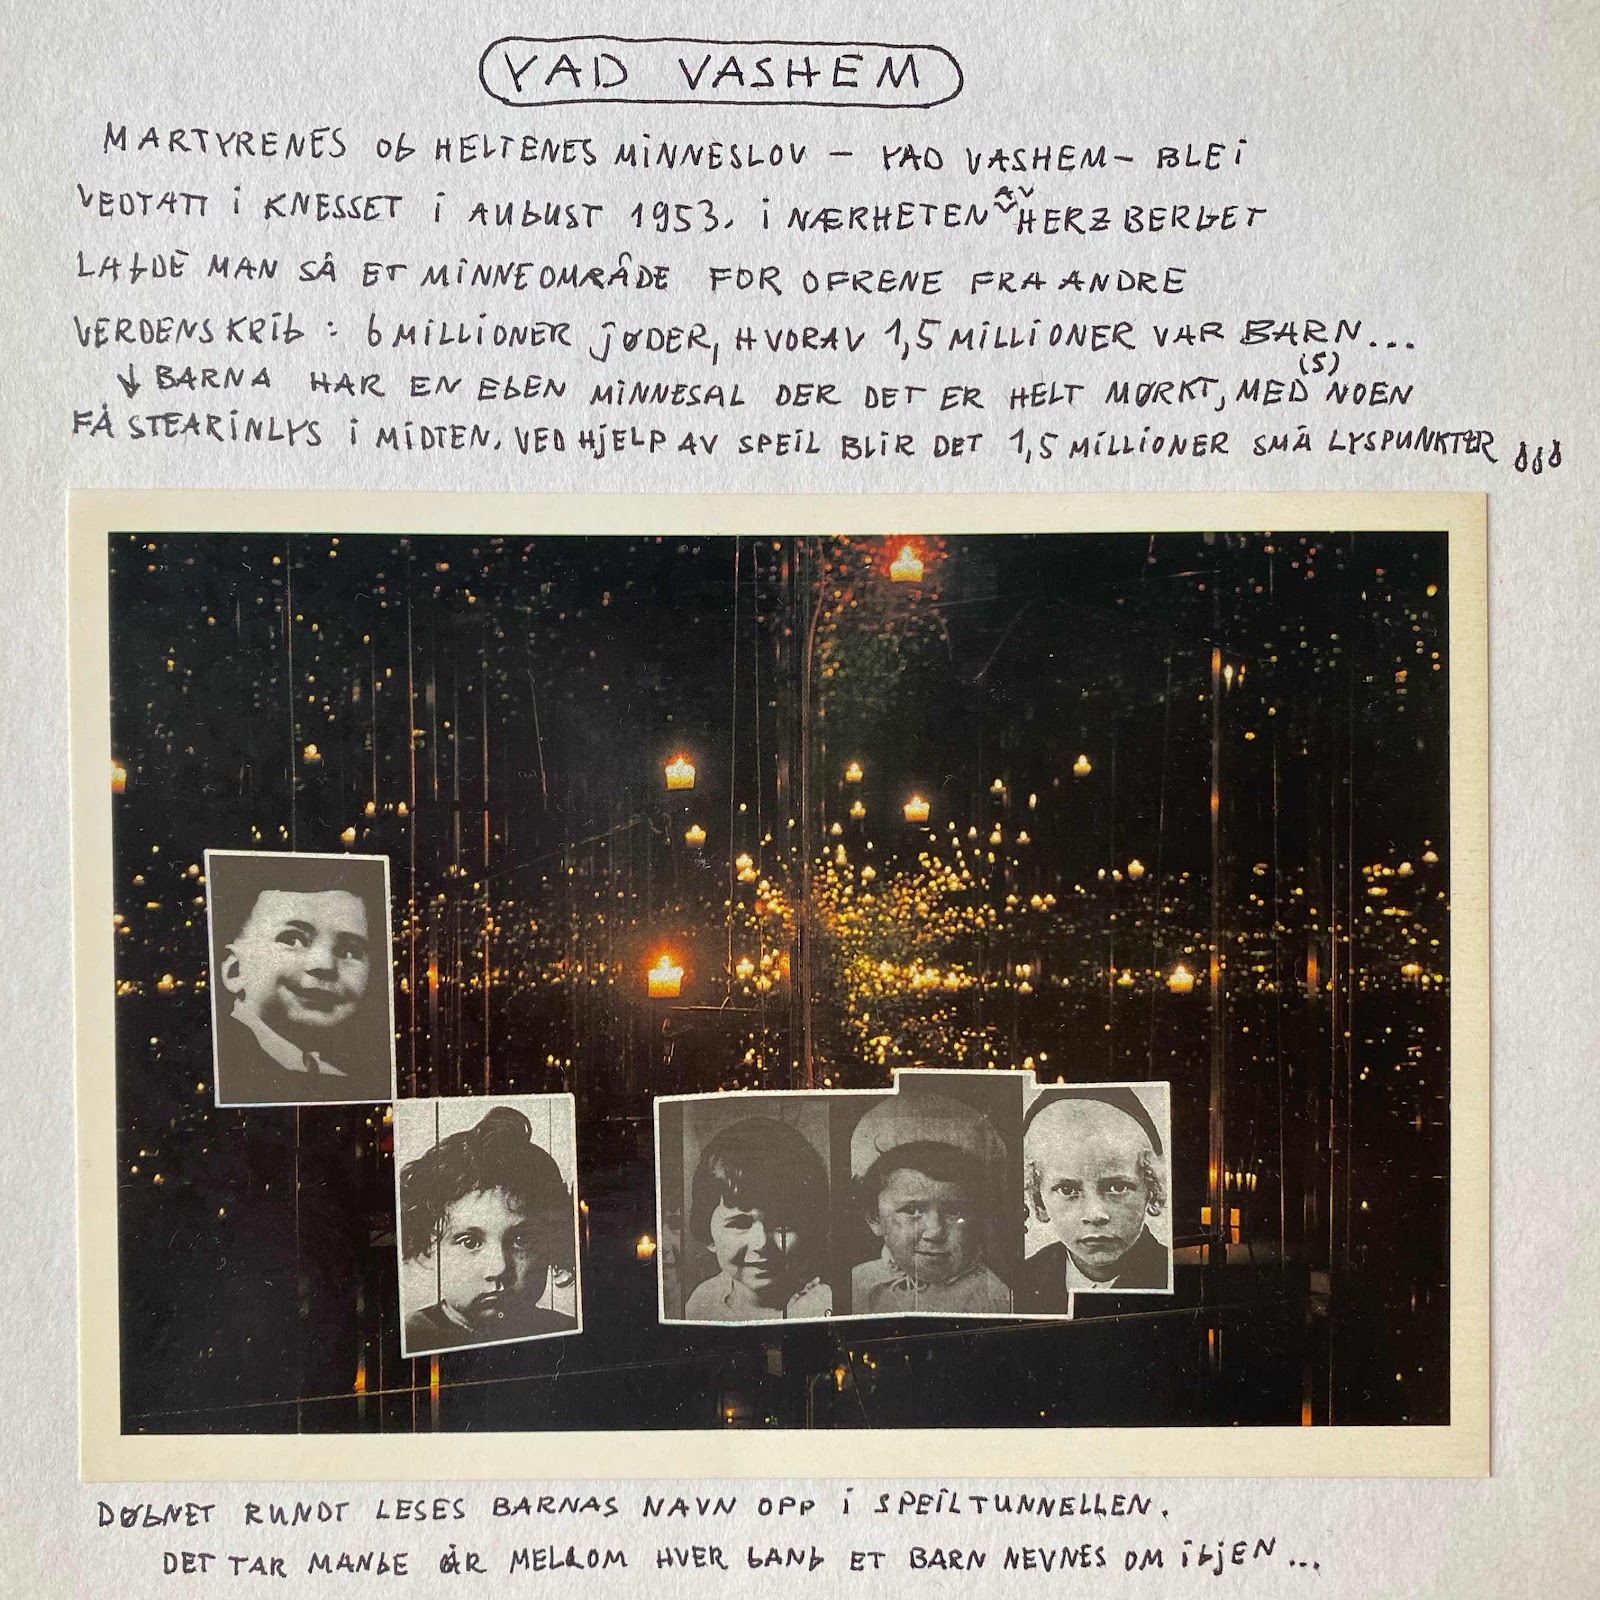 YAD VASHEM
MARTYRENES OG HELTENES MINNESLOV – YAD VASHEM – BLEI
VEDTATT I KNESSET I AUGUST 1953. I NÆRHETEN AV HERZBERGET
LAGDE MAN SÅ ET MINNEOMRÅDE FOR OFRENE FRA ANDRE
VERDENSKRIG: 6 MILLIONER JØDER, HVORAV 1,5 MILLIONER VAR BARN...
↓ BARNA HAR EN EGEN MINNESAL DER DET ER HELT MØRKT, MED (5) NOEN
FÅ STEARINLYS I MIDTEN. VED HJELP AV SPEIL BLIR DET 1,5 MILLIONER SMÅ LYSPUNKTER
DØGNET RUNDT LESES BARNAS NAVN OPP I SPEILTUNNELLEN.
DET TAR MANGE ÅR MELLOM HVER GANG ET BARN NEVNES OM IGJEN...